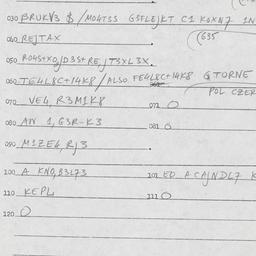 030 BRUKV3 $ / MO4TSS GSFLEJKT C1 KOXN7 1N
040 REJTAX
(635
050 RO4S+XO/D3S+RE,JT3XL3X.
060 TE4L8C+14K8 / ALSO FE4L8C+14K8 GTORNE
POL CZER
070 VE4, R3M1K8
072 O
080 AW 1, G3R-K3
081 O
090 M1ZE4, RJ3
100 A KNO, B3L73
101 ED ACAJNDL7 K
110 KEPL
111 O
120 O